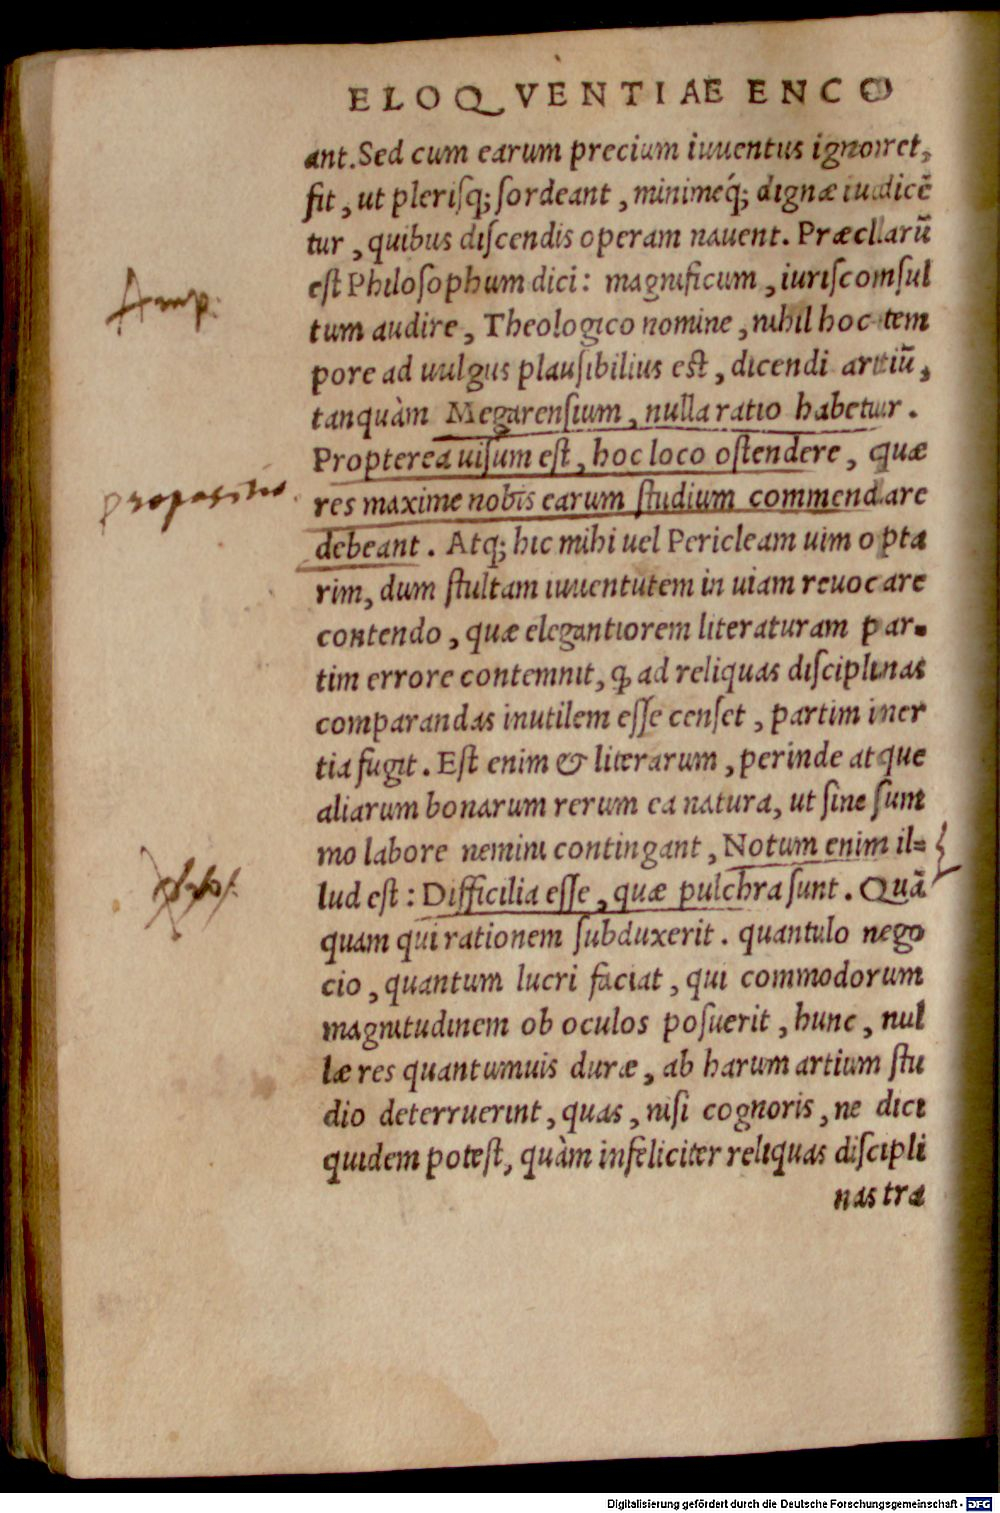 ELOQVENTIAE ENCO
ant. Sed cum earum precium iuuentus ignorret,
fit, ut plerisq; sordeant, minimeq́; dignæ iudicẽ
tur, quibus discendis operam nauent. Præclarũ
est Philosophum dici: magnificum, iuriscomsul
tum audire, Theologico nomine, nihil hoc tem
pore ad uulgus plausibilius est, dicendi artiũ,
tanquàm Megarensium, nulla ratio habetur.
Propterea uisum est, hoc loco ostendere, quæ
res maxime nobis earum studium commendare
debeant. Atq; hic mihi uel Pericleam uim opta
rim, dum stultam iuuentutem in uiam reuocare
contendo, quæ elegantiorem literaturam par-
tim errore contemnit, ꝙ ad reliquas disciplinas
comparandas inutilem esse censet, partim iner
tia fugit. Est enim & literarum, perinde atque
aliarum bonarum rerum ea natura, ut sine sum
mo labore nemini contingant, Notum enim il=
lud est: Difficilia esse, quæ pulchra sunt. Quã
quam qui rationem subduxerit. quantulo nego
cio, quantum lucri faciat, qui commodorum
magnitudinem ob oculos posuerit, hunc, nul
læ res quantumuis duræ, ab harum artium stu
dio deterruerint, quas, nisi cognoris, ne dici
quidem potest, quàm infeliciter reliquas discipli
nas tra
Amp:
propositio.
Digitalisierung gefördert durch die Deutsche Forschungsgemeinschaft - DFG